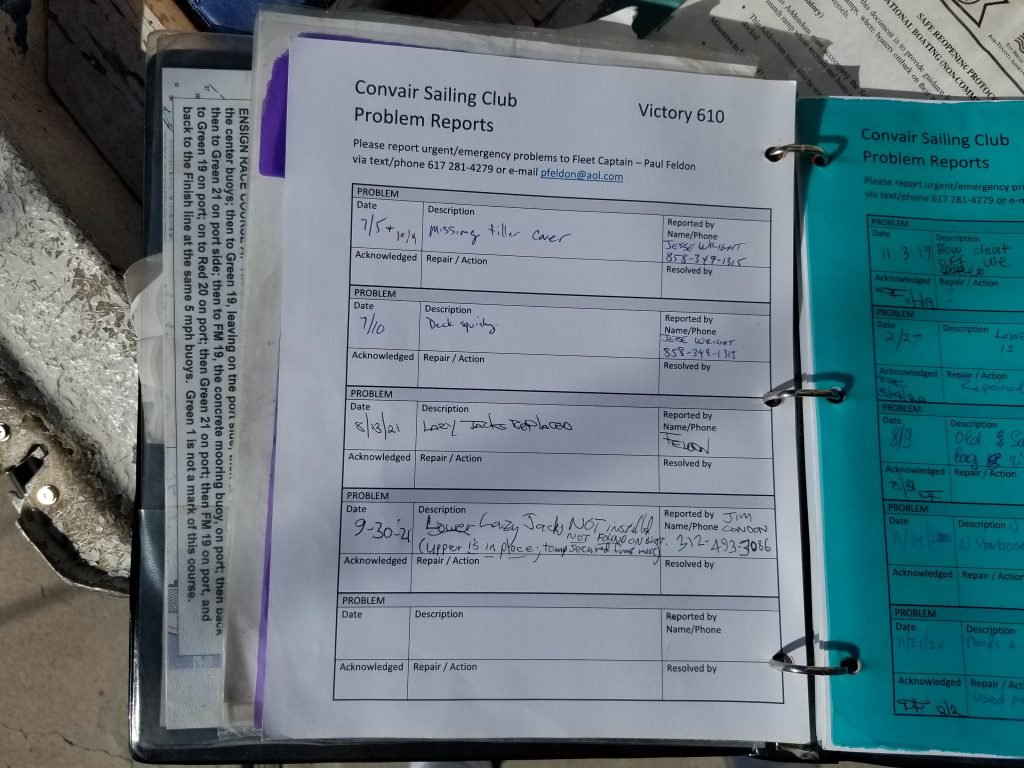 Convair Sailing Club
Victory 610
Problem Reports
Please report urgent/emergency problems to Fleet Captain – Paul Feldon
via text/phone 617 281-4279 or e-mail pfeldon@aol.com
PROBLEM
Date
Description
Reported by
Name/Phone
7/5 + 10/9
Missing tiller cover
JESSE WRIGHT
858-349-1315
Acknowledged
Repair / Action
Resolved by
PROBLEM
Date
Description
Reported by
Name/Phone
7/10
Deck squishy
JESSE WRIGHT
858-349-1315
Acknowledged
Repair / Action
Resolved by
PROBLEM
Date
Description
Reported by
8/13/21
LAZY JACKS REPLACED
FELDON
Acknowledged
Repair / Action
Resolved by
PROBLEM
Date
Description
Reported by JIM
Name/Phone CONDON
9-30-21
Lower Lazy Jacks NOT installed
NOT FOUND ON BOAT.
(upper is in place; temp secured
312-493-3086
Acknowledged
Repair / Action
Resolved by
PROBLEM
Date
Description
Reported by
Name/Phone
Acknowledged
Repair / Action
Resolved by
ENSIGN RACE COURSE
the center buoys; then to Green 19, leaving on the port side,
then to Green 21 on port side; then to FM 19, the concrete mooring buoy, on port; then back
to Green 19 on port; on to Red 20 on port; then Green 21 on port; then FM 19 on port, and
back to the Finish line at the same 5 mph buoys. Green 1 is not a mark of this course.
SAFE REOPENING PROTOC
ATIONAL BOATING (NON-COMM
this document is to provide guidance
where boaters embark on their
Convair Sailing Club
Problem Reports
Please report urgent/emergency pr
via text/phone 617 281-4279 or e-m
PROBLEM
Date
Description
11-3-19
Bow cleat
off
Acknowledged
Repair / Action
?
PROBLEM
Date
Description
2/27
Lowe
is
Acknowledged
Repair / Action
Repaired
PROBLEM
Date
Description
8/9
Old & Sa
bag
Acknowledged
Repair / Action
PROBLEM
Date
Description 1)
11/14/2020
2) Starboa
Acknowledged
Repair / Action
PROBLEM
Date
Description
11/21/20
Decks a
Acknowledged
Repair / Action
used p